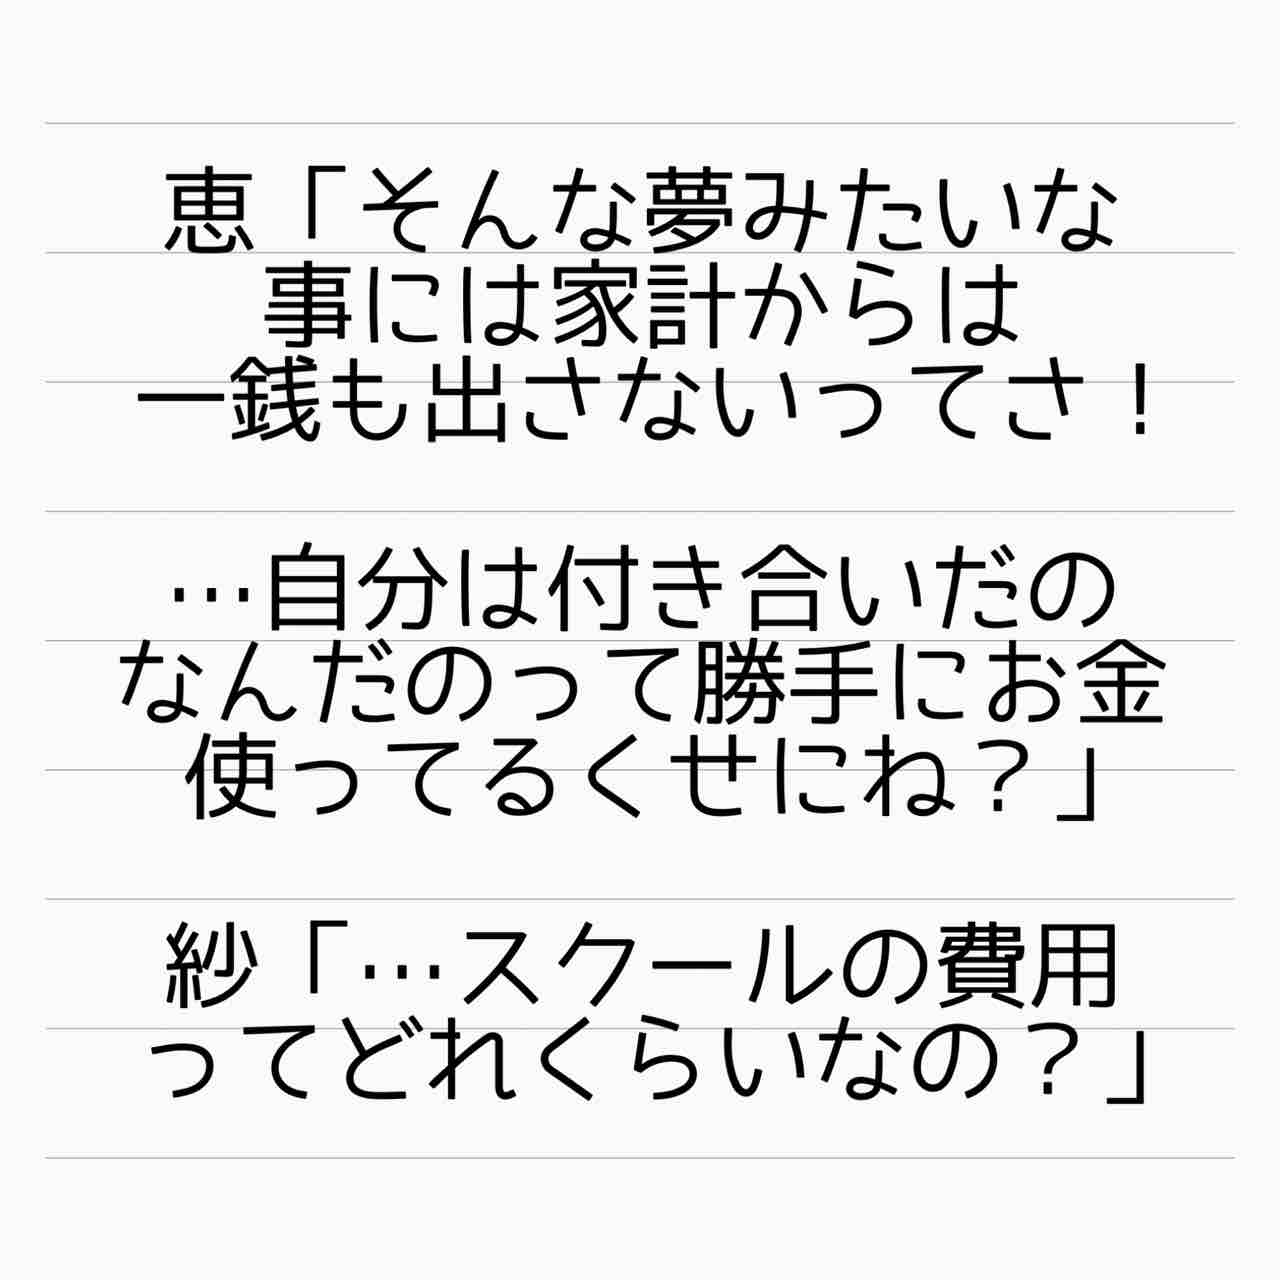 恵「そんな夢みたいな
事には家計からは
一銭も出さないってさ！
…自分は付き合いだの
なんだのって勝手にお金
使ってるくせにね？」
紗「…スクールの費用
ってどれくらいなの？」